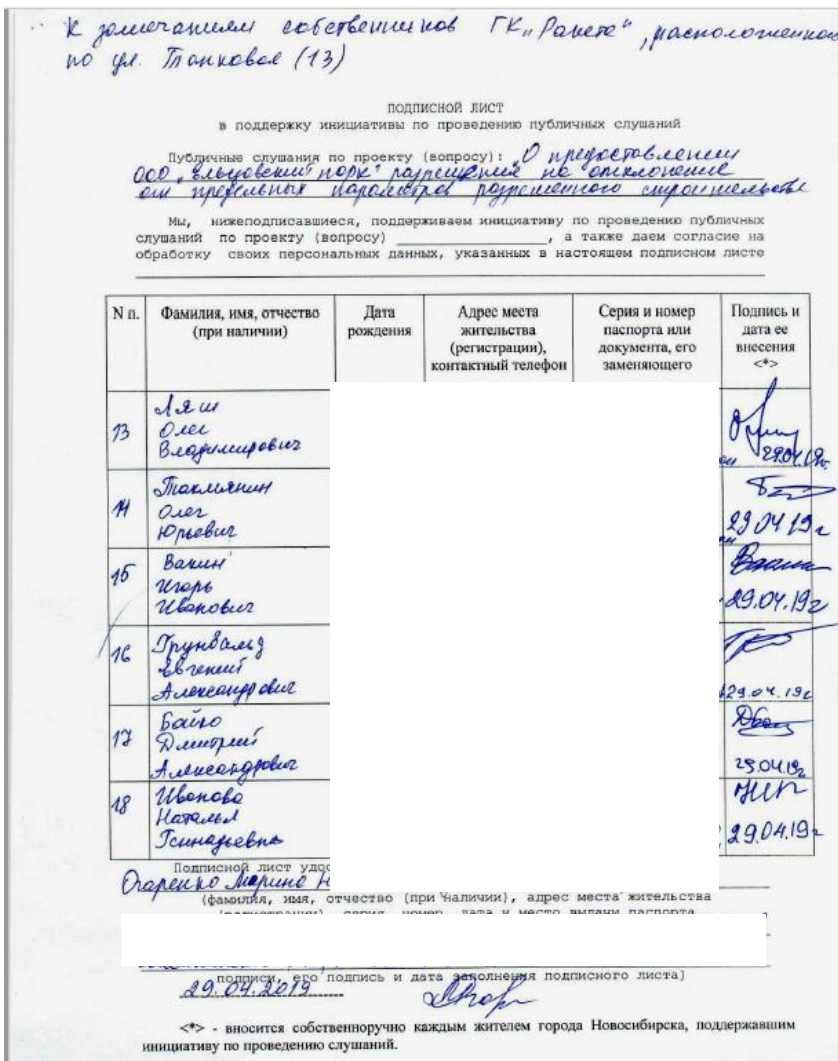 К замечаниям собственников ГК „Ракета", расположенной
по ул. Танковая (13)
ПОДПИСНОЙ ЛИСТ
в поддержку инициативы по проведению публичных слушаний
Публичные слушания по проекту (вопросу): „О предоставлении
ООО „Ельцовский парк" разрешения на отклонение
от предельных параметров разрешенного строительства
Мы, нижеподписавшиеся, поддерживаем инициативу по проведению публичных
слушаний по проекту (вопросу) ____________, а также даем согласие на
обработку своих персональных данных, указанных в настоящем подписном листе
N п. Фамилия, имя, отчество (при наличии) Дата рождения Адрес места жительства (регистрации), контактный телефон Серия и номер паспорта или документа, его заменяющего Подпись и дата ее внесения <*>
13 Ляш
Олег
Владимирович 29.04.19г
14
Олег
Юрьевич 29.04.19г
15 Вакин
Игорь
Иванович 29.04.19г
16 Грунвальд
Евгений
Александрович 29.04.19г
17 Байко
Дмитрий
Александрович 29.04.19г
18 Иванова
Наталья
Геннадьевна 29.04.19г
Подписной лист удос
Огаренко Марина
(фамилия, имя, отчество (при наличии), адрес места жительства
(регистрации), серия, номер, дата и место выдачи паспорта
подписи, его подпись и дата заполнения подписного листа)
29.04.2019
<*> - вносится собственноручно каждым жителем города Новосибирска, поддержавшим
инициативу по проведению слушаний.